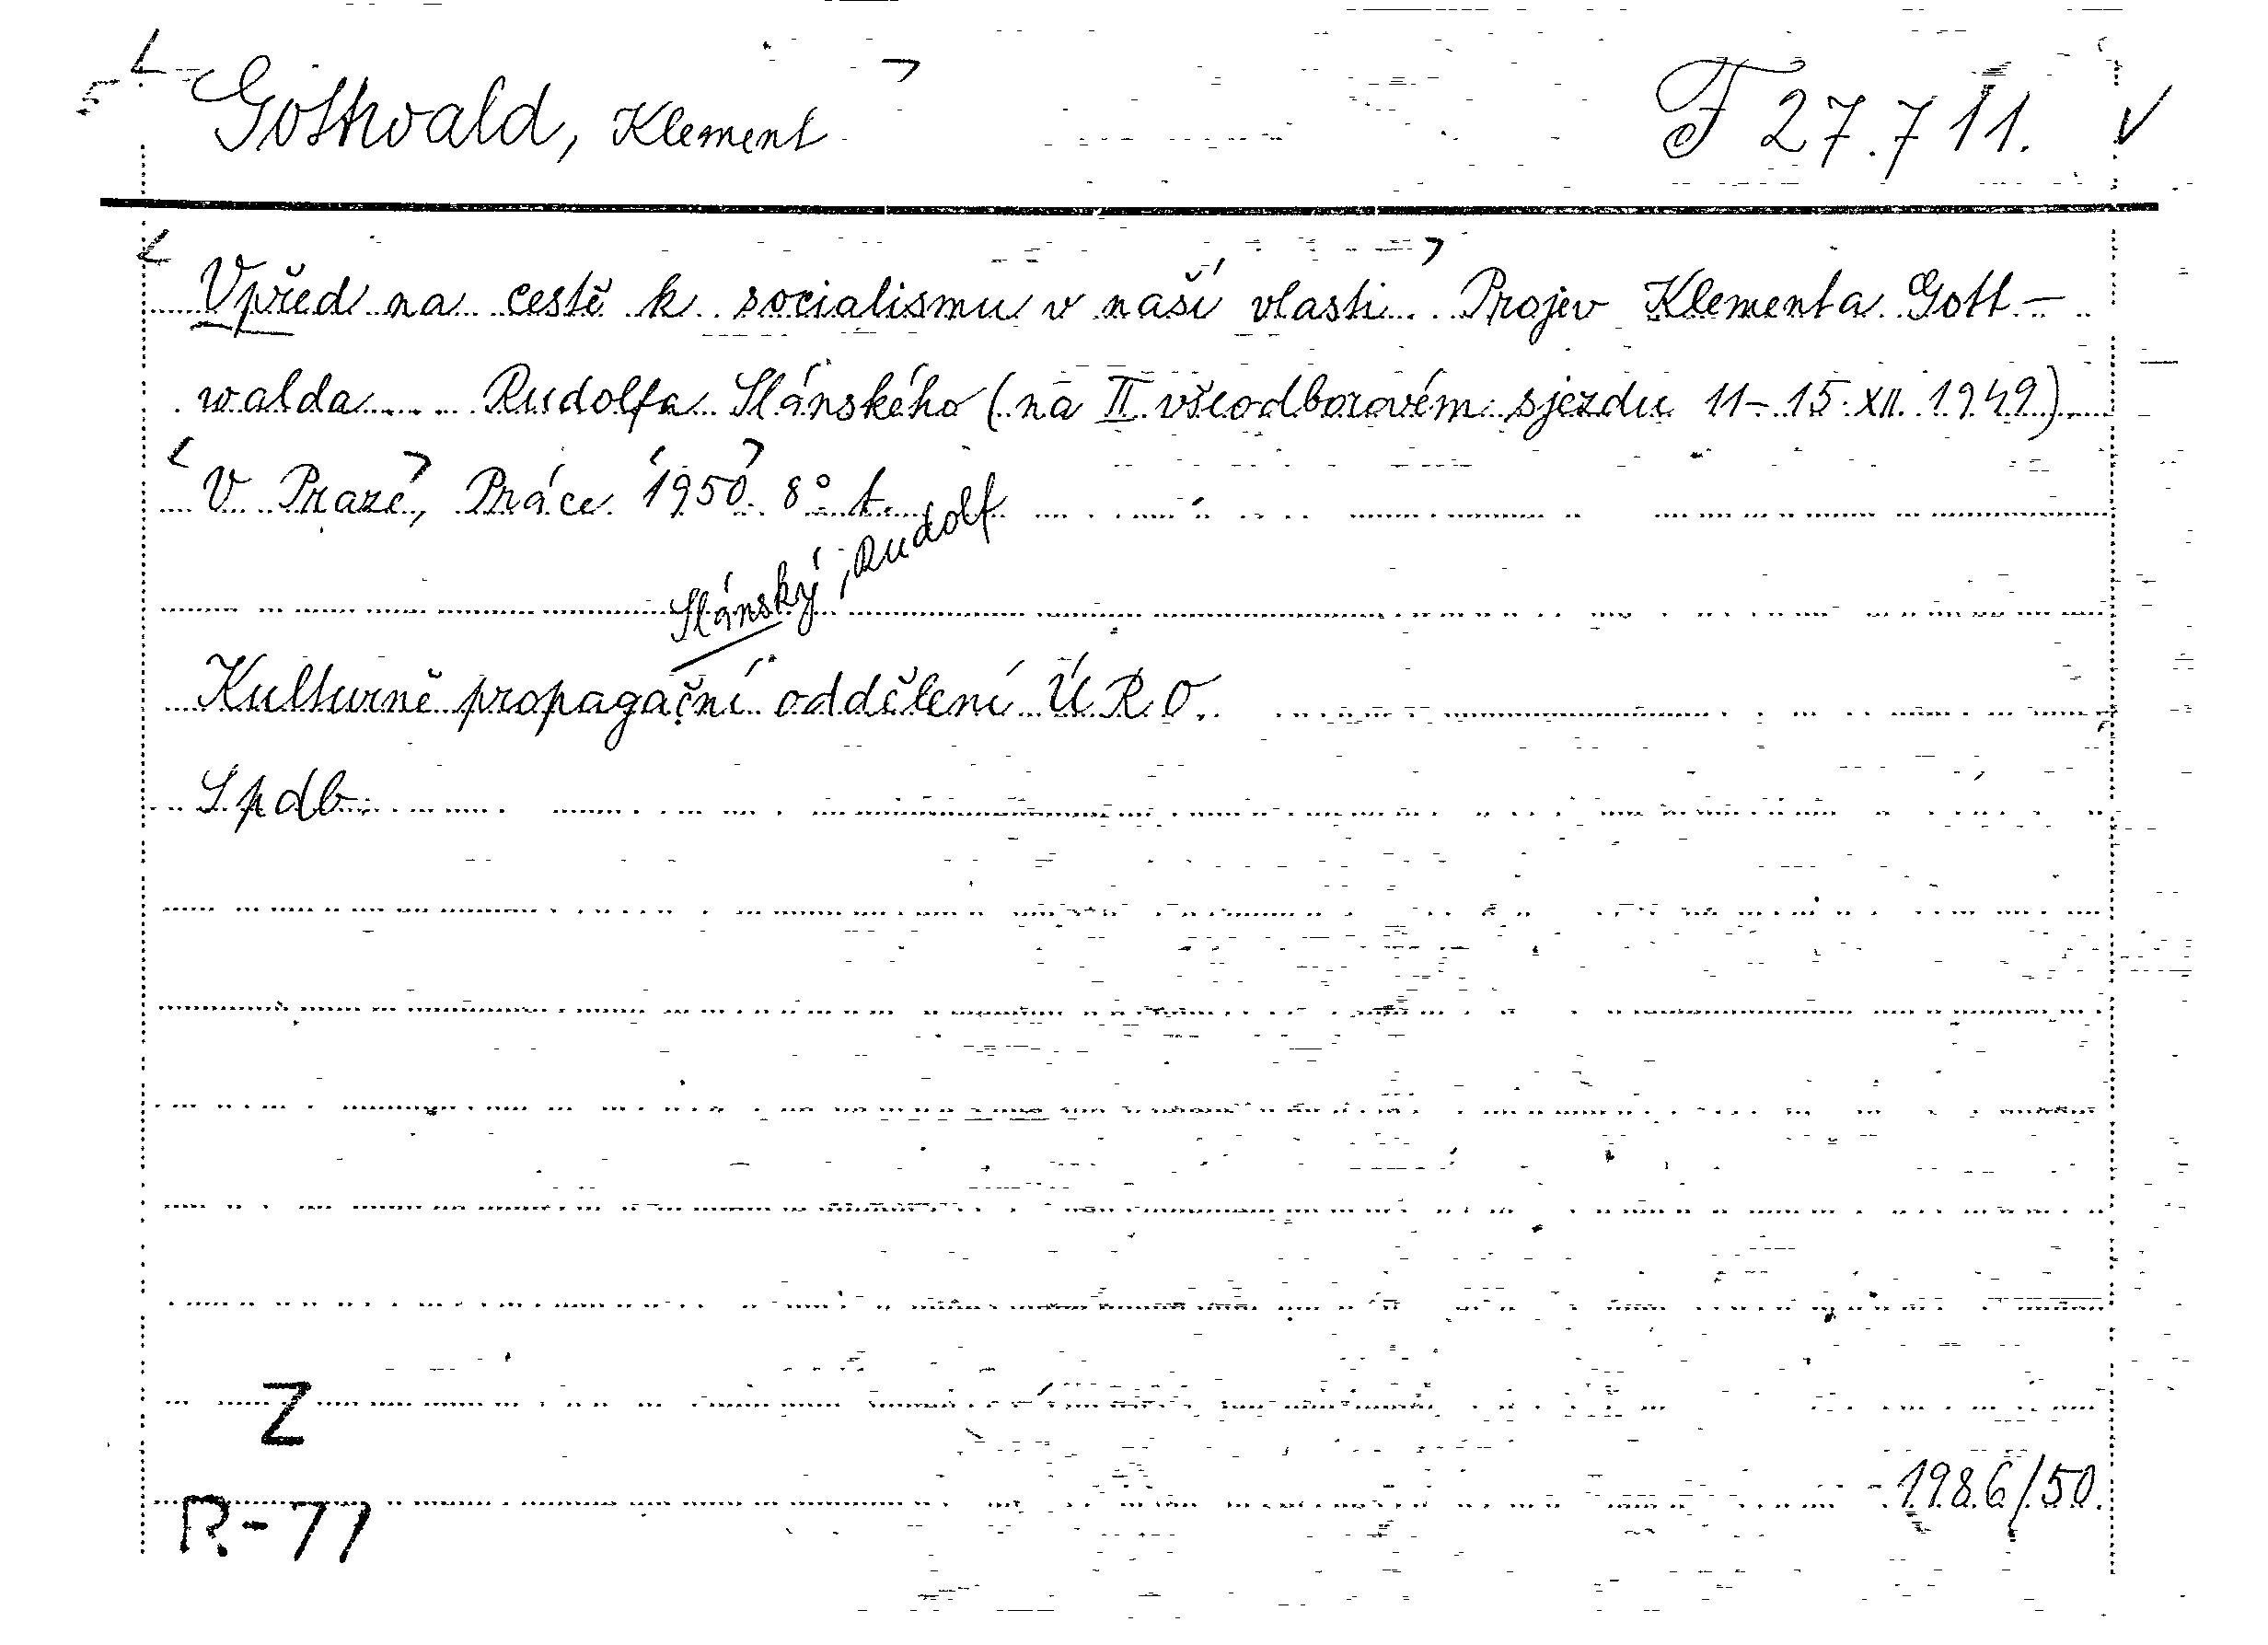 Gottwald, Klement F 27.711. V
Vpřed na cestě k socialismu v naší vlasti. Projev Klementa Gott-
walda... Rudolfa Slánského (na II všeodborovém sjezdu 11-15.XII.1949).
V Praze, Práce 1950. 8° t.
Slánský, Rudolf
Kulturně propagační oddělení ÚRO.
Spdb.
Z
1986/50.
R-71